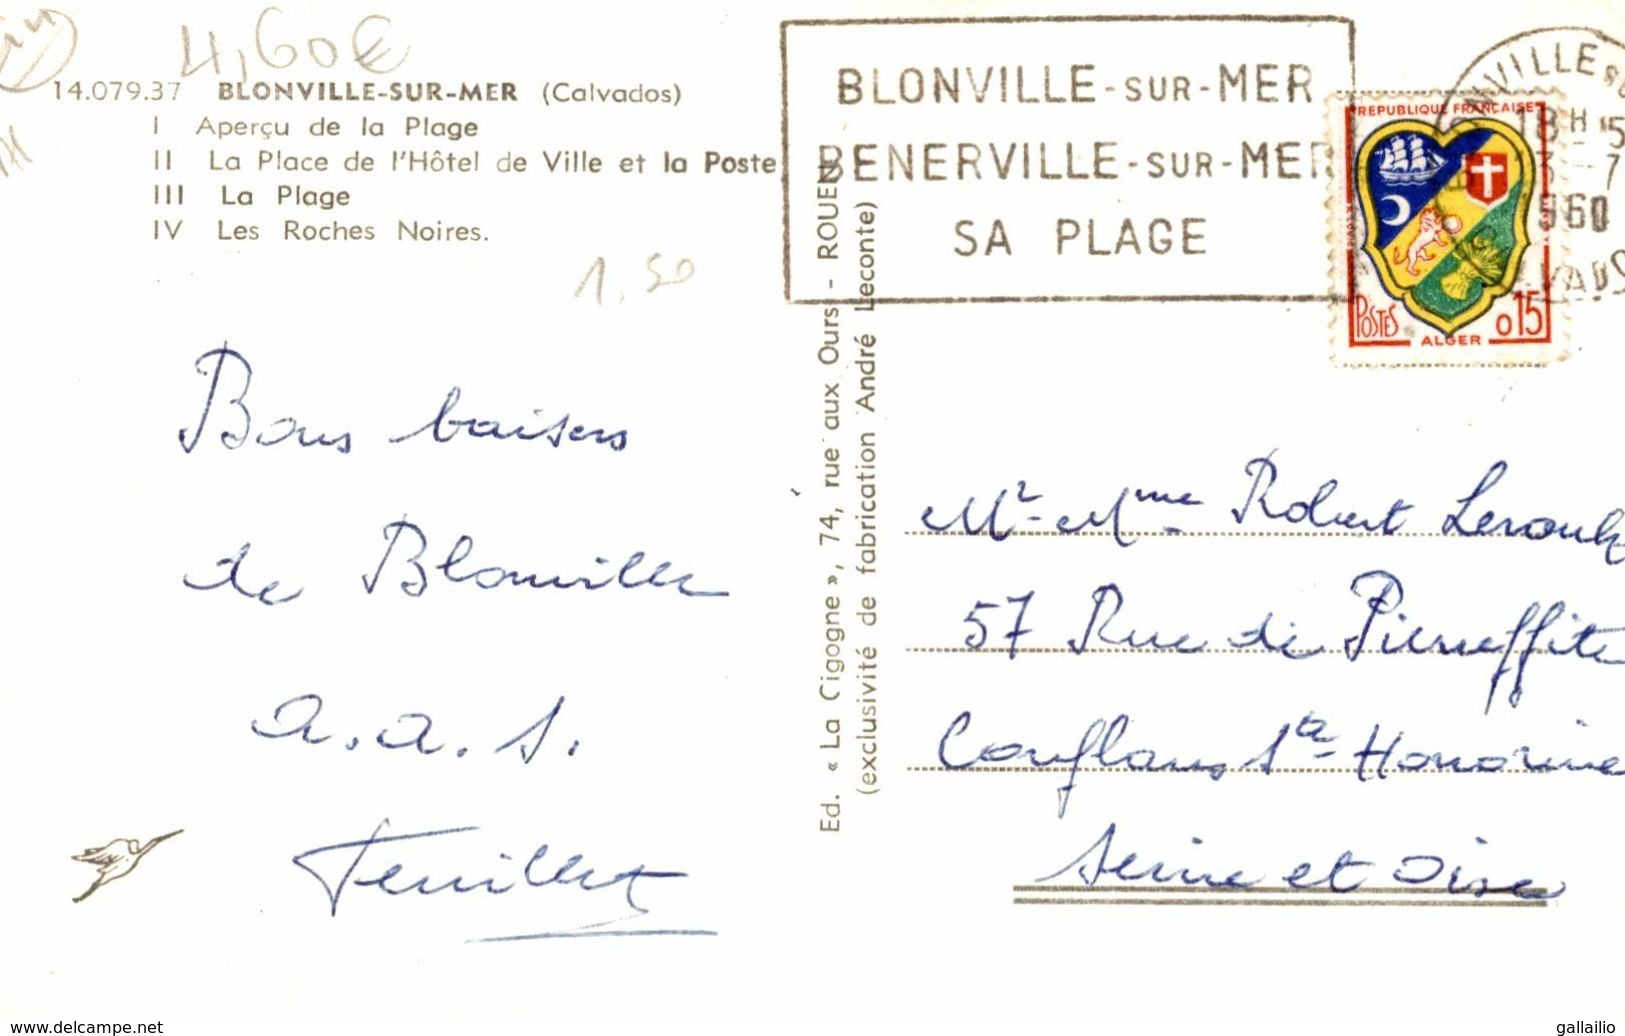 4,60€
14.079.37 BLONVILLE-SUR-MER (Calvados)
I Aperçu de la Plage
II La Place de l'Hôtel de Ville et la Poste
III La Plage
IV Les Roches Noires.
1,50
Bons baisers
de Blonville
a.a.S.
Feuillet
Ed. « La Cigogne », 74, rue aux Ours - ROUEN
(exclusivité de fabrication André Leconte)
BLONVILLE-SUR-MER
BENERVILLE-SUR-MER
SA PLAGE
18H
13-7
1960
REPUBLIQUE FRANÇAISE
POSTES
0,15
ALGER
Mr Mme Robert
57 Rue de Pierreffite
Conflans Ste Honorine
Seine et Oise
www.delcampe.net
gallailio